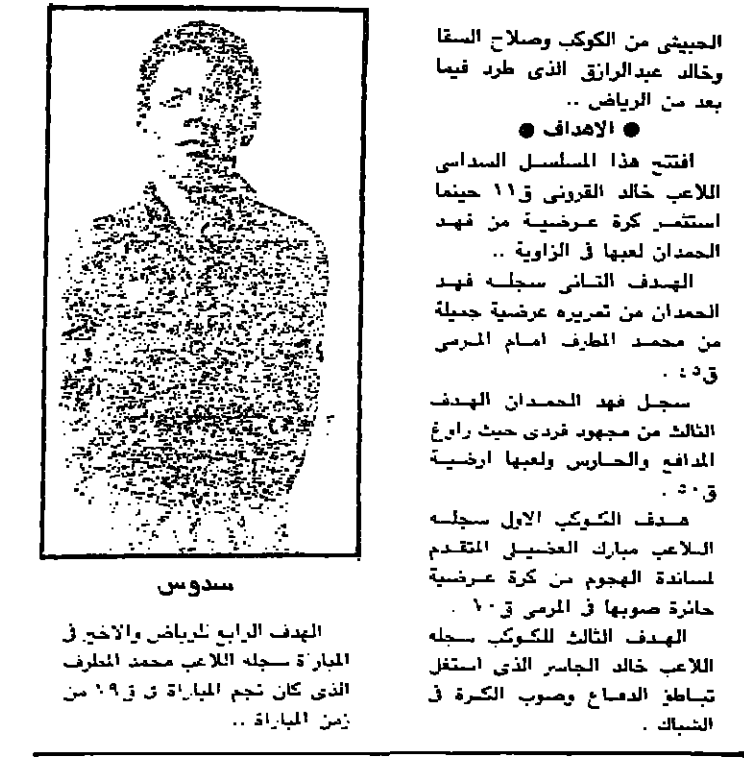 الحبيشى من الكوكب وصلاح السقا
وخالد عبدالرازق الذى طرد فيما
بعد من الرياض ..
● الاهداف ●
افتتح هذا المسلسل السداسى
اللاعب خالد القرونى ق١١ حينما
استثمر كرة عرضية من فهد
الحمدان لعبها فى الزاوية ..
الهدف الثانى سجله فهد
الحمدان من تمريره عرضية جميلة
من محمد المطرف امام المرمى
ق٤٥ .
سجل فهد الحمدان الهدف
الثالث من مجهود فردى حيث راوغ
المدافع والحارس ولعبها ارضية
ق٥٠ .
هدف الكوكب الاول سجله
اللاعب مبارك العضيلى المتقدم
لمساندة الهجوم من كرة عرضية
حائرة صوبها فى المرمى ق٦٠ .
الهدف الثالث للكوكب سجله
اللاعب خالد الجاسر الذى استغل
تباطؤ الدفاع وصوب الكرة فى
الشباك .
سدوس
الهدف الرابع للرياض والاخير فى
المباراة سجله اللاعب محمد المطرف
الذى كان نجم المباراة فى من
زمن المباراة ..